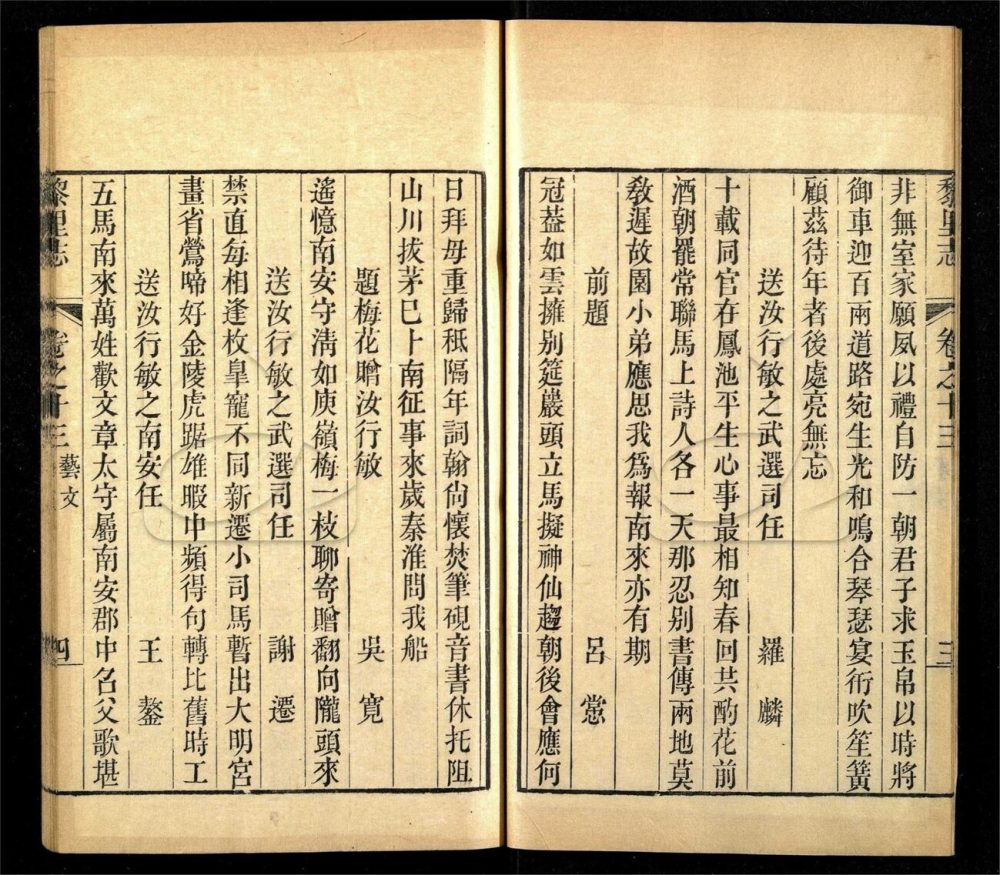 黎里志 卷之十三 三
非無室家願夙以禮自防一朝君子求玉帛以時將
御車迎百兩道路宛生光和鳴合琴瑟宴衎吹笙簧
顧茲待年者後處亮無忘
送汝行敏之武選司任 羅麟
十載同官在鳳池平生心事最相知春回共酌花前
酒朝罷常聯馬上詩人各一天那忍别書傳兩地莫
敎遲故園小弟應思我爲報南來亦有期
前題 呂㦂
冠葢如雲擁别筵巖頭立馬擬神仙趨朝後會應何
日拜毋重歸秪隔年詞翰尙懷焚筆硯音書休托阻
山川拔茅巳上南征事來歲秦淮問我船
題梅花贈汝行敏 吳寛
遥憶南安守淸如庾嶺梅一枝聊寄贈翻向隴頭來
送汝行敏之武選司任 謝遷
禁直每相逢枚臯寵不同新遷小司馬暫出大明宮
畫省鶯啼好金陵虎踞雄暇中頻得句轉比舊時工
送汝行敏之南安任 王鏊
五馬南來萬姓歡文章太守屬南安郡中名父歌堪
黎里志 卷之十三 藝文 四